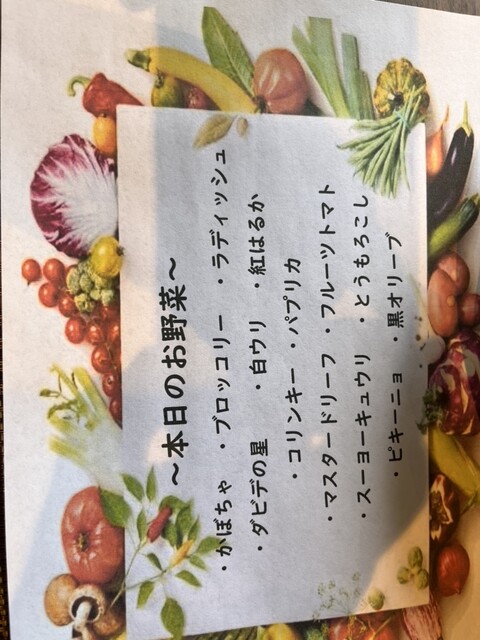 ～本日のお野菜～
・かぼちゃ ・ブロッコリー ・ラディッシュ
・ダビデの星 ・白ウリ ・紅はるか
・コリンキー ・パプリカ
・マスタードリーフ ・フルーツトマト
・スーヨーキュウリ ・とうもろこし
・ピキーニョ ・黒オリーブ